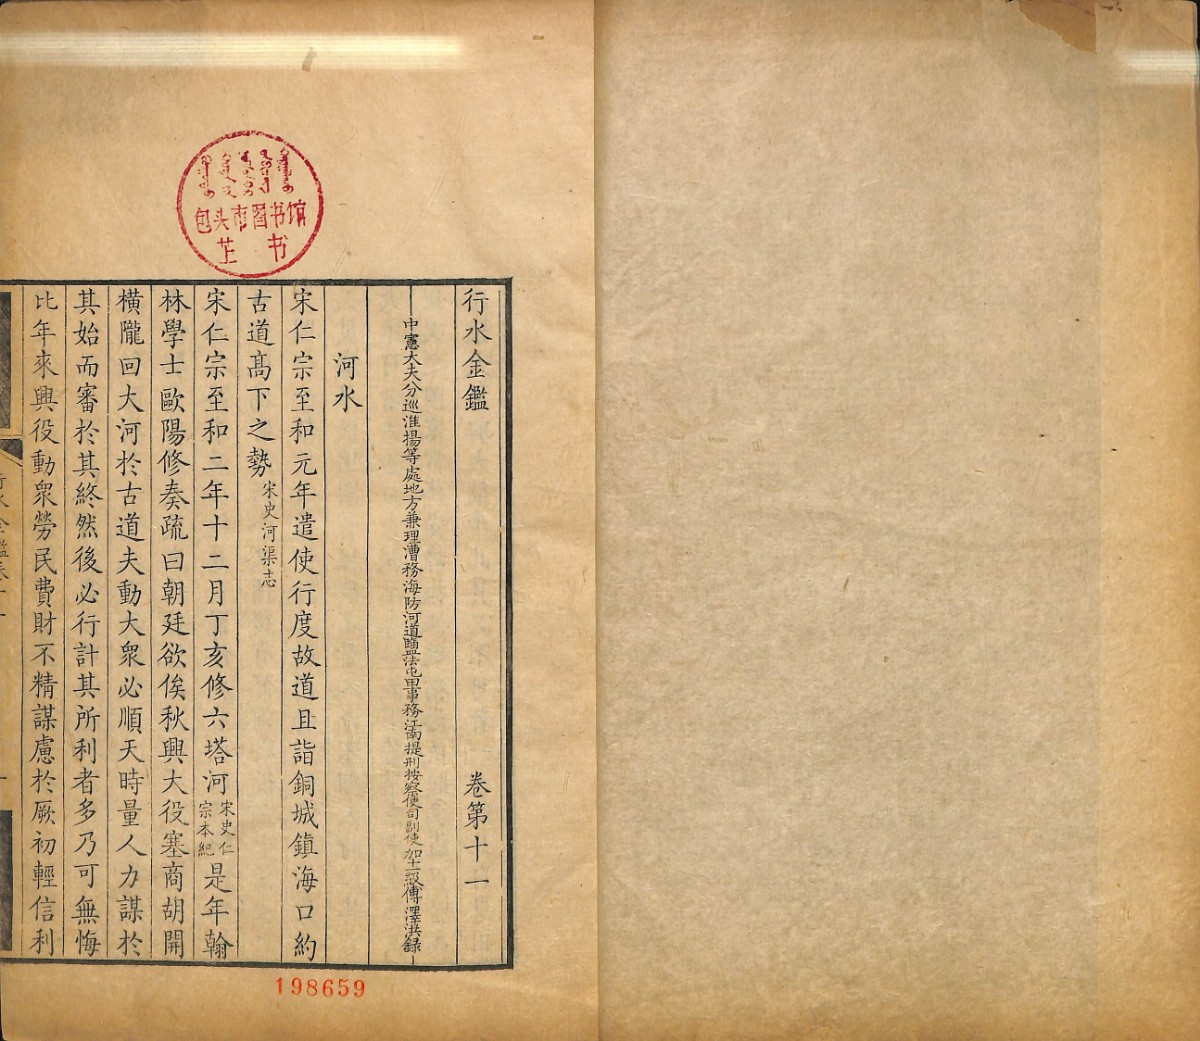 行水金鑑 卷第十一
中憲大夫分巡淮揚等處地方兼理漕務海防河道鹽法屯田事務江南提刑按察使司副使加二級傅澤洪録
河水
宋仁宗至和元年遣使行度故道且詣銅城鎮海口約
古道髙下之勢宋史河渠志
宋仁宗至和二年十二月丁亥修六塔河宋史仁宗本紀是年翰
林學士歐陽修奏疏曰朝廷欲俟秋興大役塞商胡開
橫隴回大河於古道夫動大衆必順天時量人力謀於
其始而審於其終然後必行計其所利者多乃可無悔
比年來興役動衆勞民費財不精謀慮於厥初輕信利
行水金鑑卷十一
包头市图书馆
198659